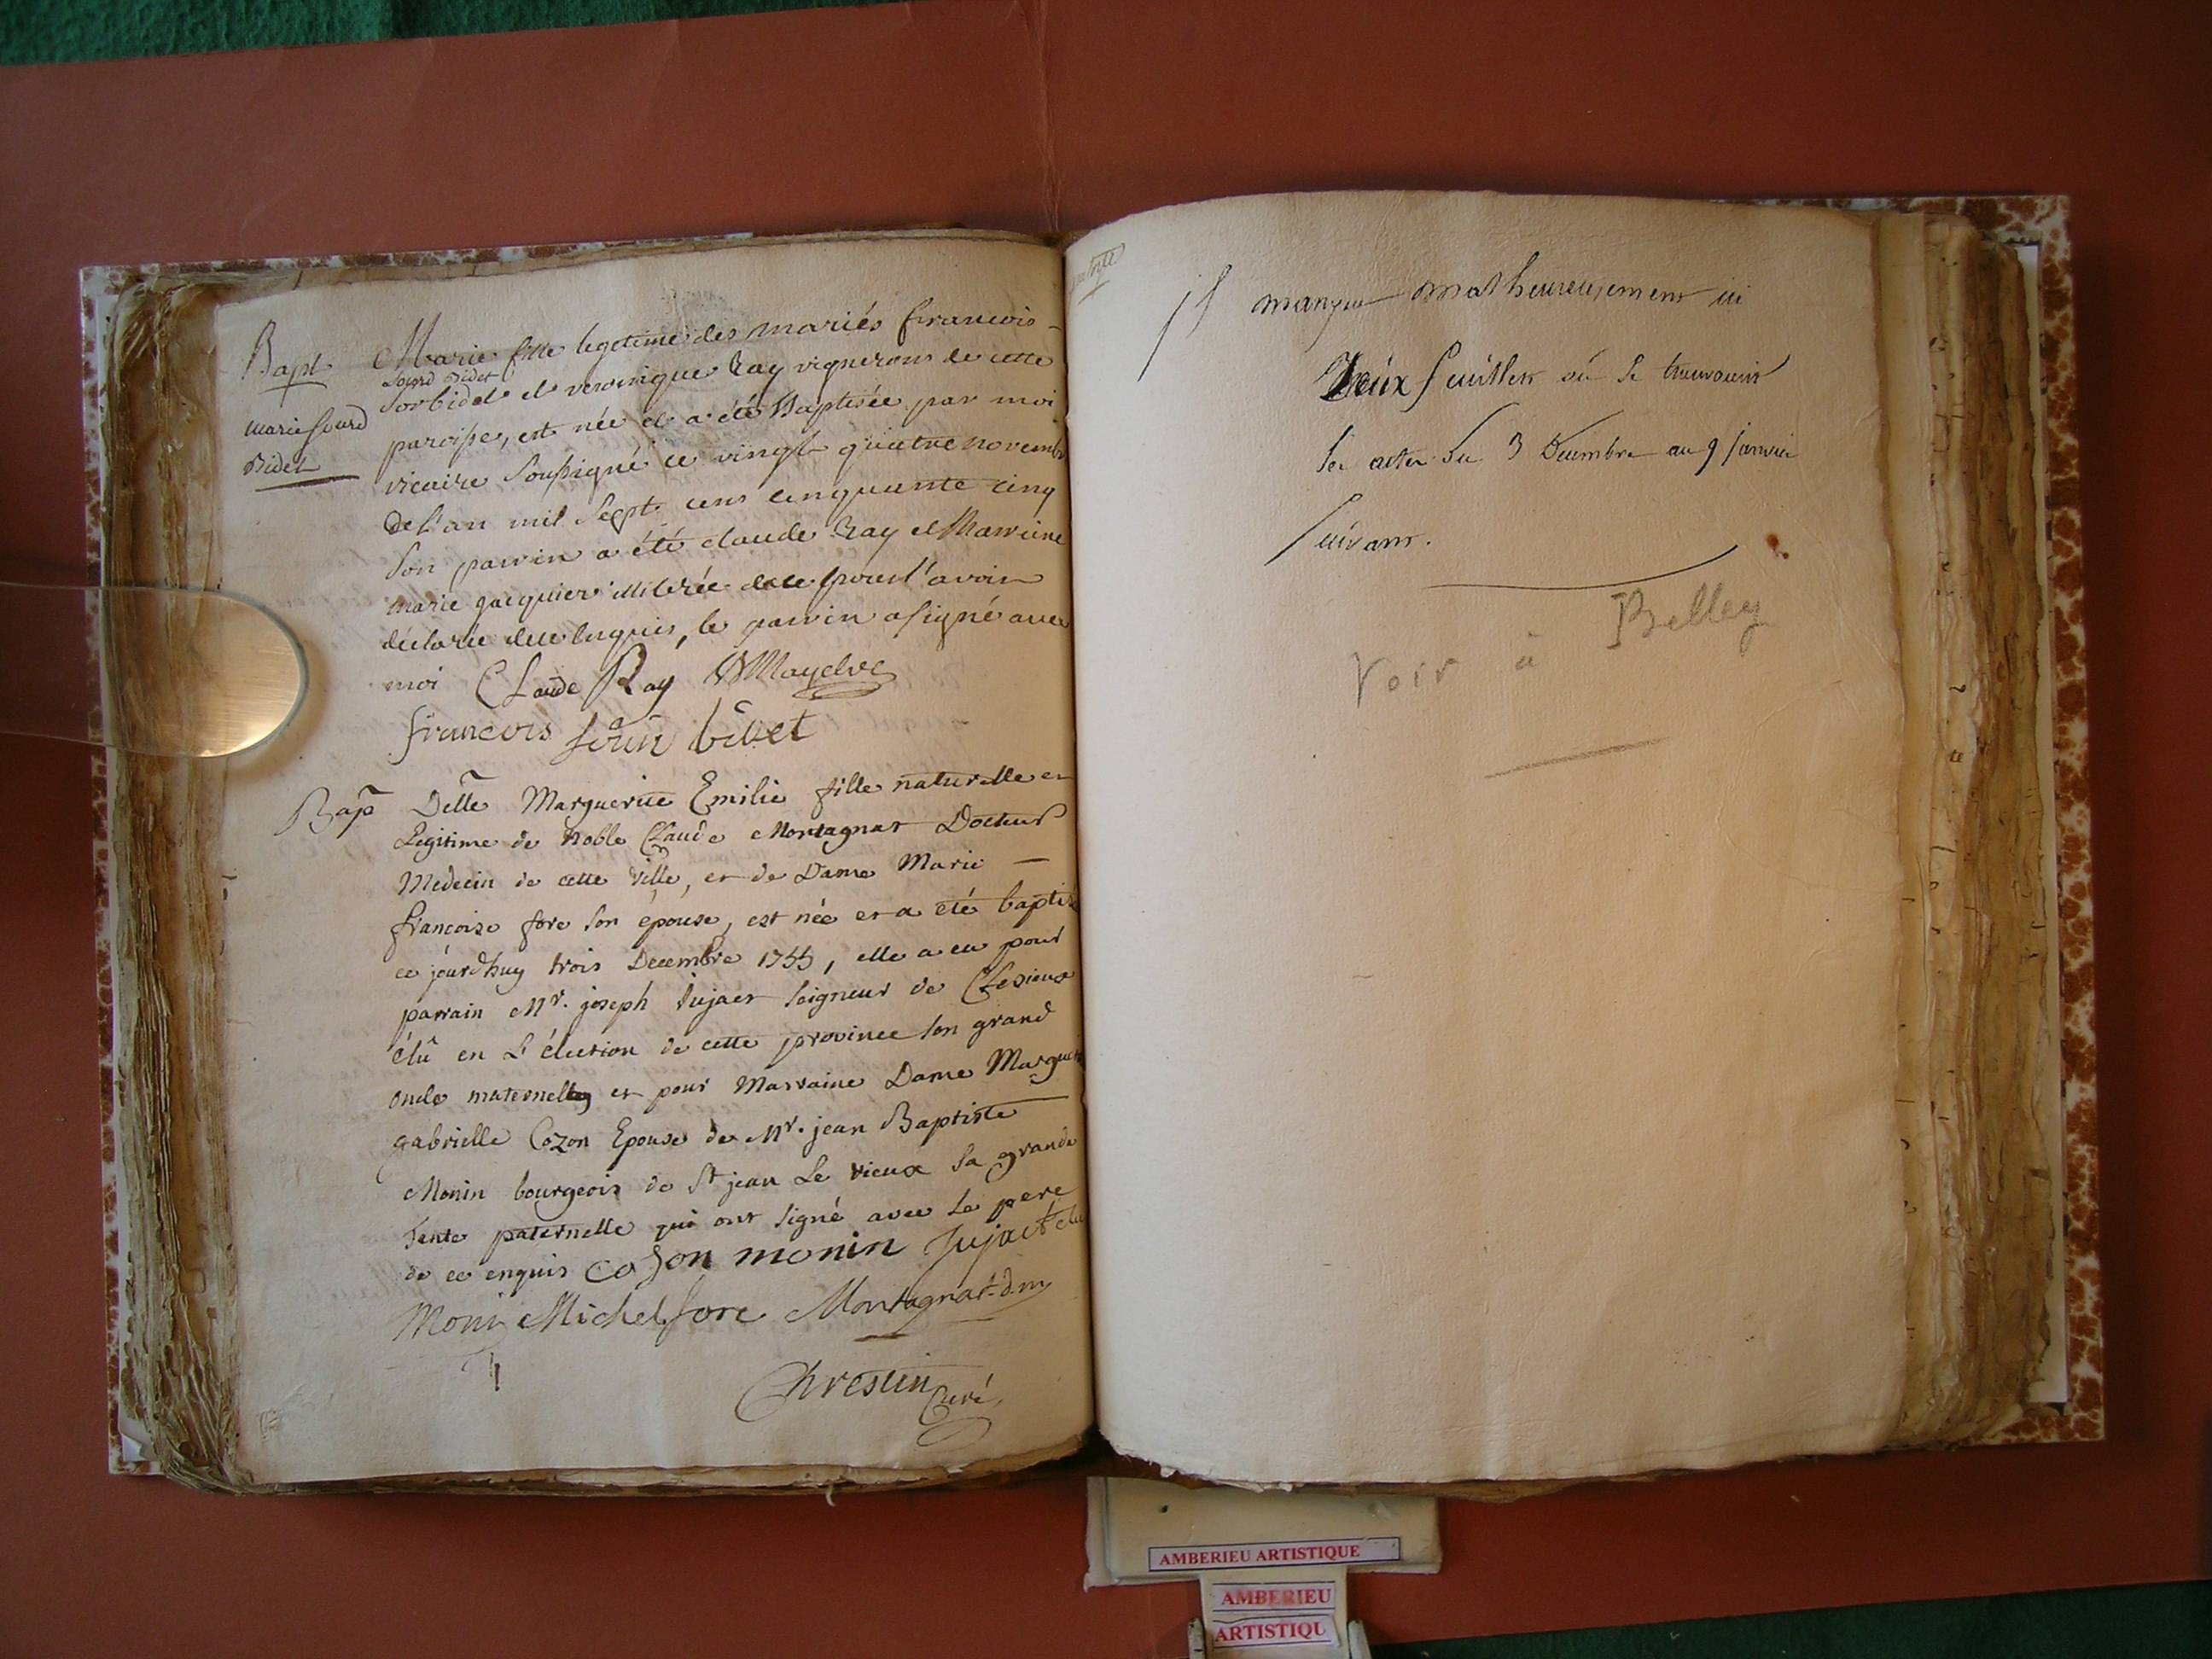 Bapt
marie sourd
Bidet
Marie fille legetime des mariés francois
sourd Bidet
Sorbidet et veronique Ray vignerons de cette
paroisse, est née et a été Baptisée par moi
vicaire soussigné ce vingt quatre novembr
de l'an mil sept cens cinquante cinq
son parrin a été claude Ray et Marreine
marie jacquier illiterée
déclarée enquis, le parrin a signé avec
moi Claude Ray
francois bidet
Bap
Delle Marguerite Emilie fille naturelle et
Legitime de Noble Claude Montagnat Docteur
Medecin de cette ville, et de Dame Marie
francoise fore son épouse, est née et a eté baptisé
ce jourdhuy trois Decembre 1755, elle a eu pour
parrain Mr. joseph Jujact seigneur de
élû en L'élection de cette province son grand
oncle maternelle et pour Marraine Dame Marguer
gabrielle Cozon Epouse de Mr. jean Baptiste
Monin bourgeois de St jean Le vieux sa grande
tente paternelle qui ont signé avec le pere
de ce enquis cozon monin Jujact élu
Monin Michel fore Montagnat d.m
Chrestin Curé
il manque malheureusement ici
Deux feuillets où se trouvaient
les actes du 3 Decembre au 9 janvier
suivant.
Voir à Belley
AMBERIEU ARTISTIQUE
AMBERIEU
ARTISTIQU